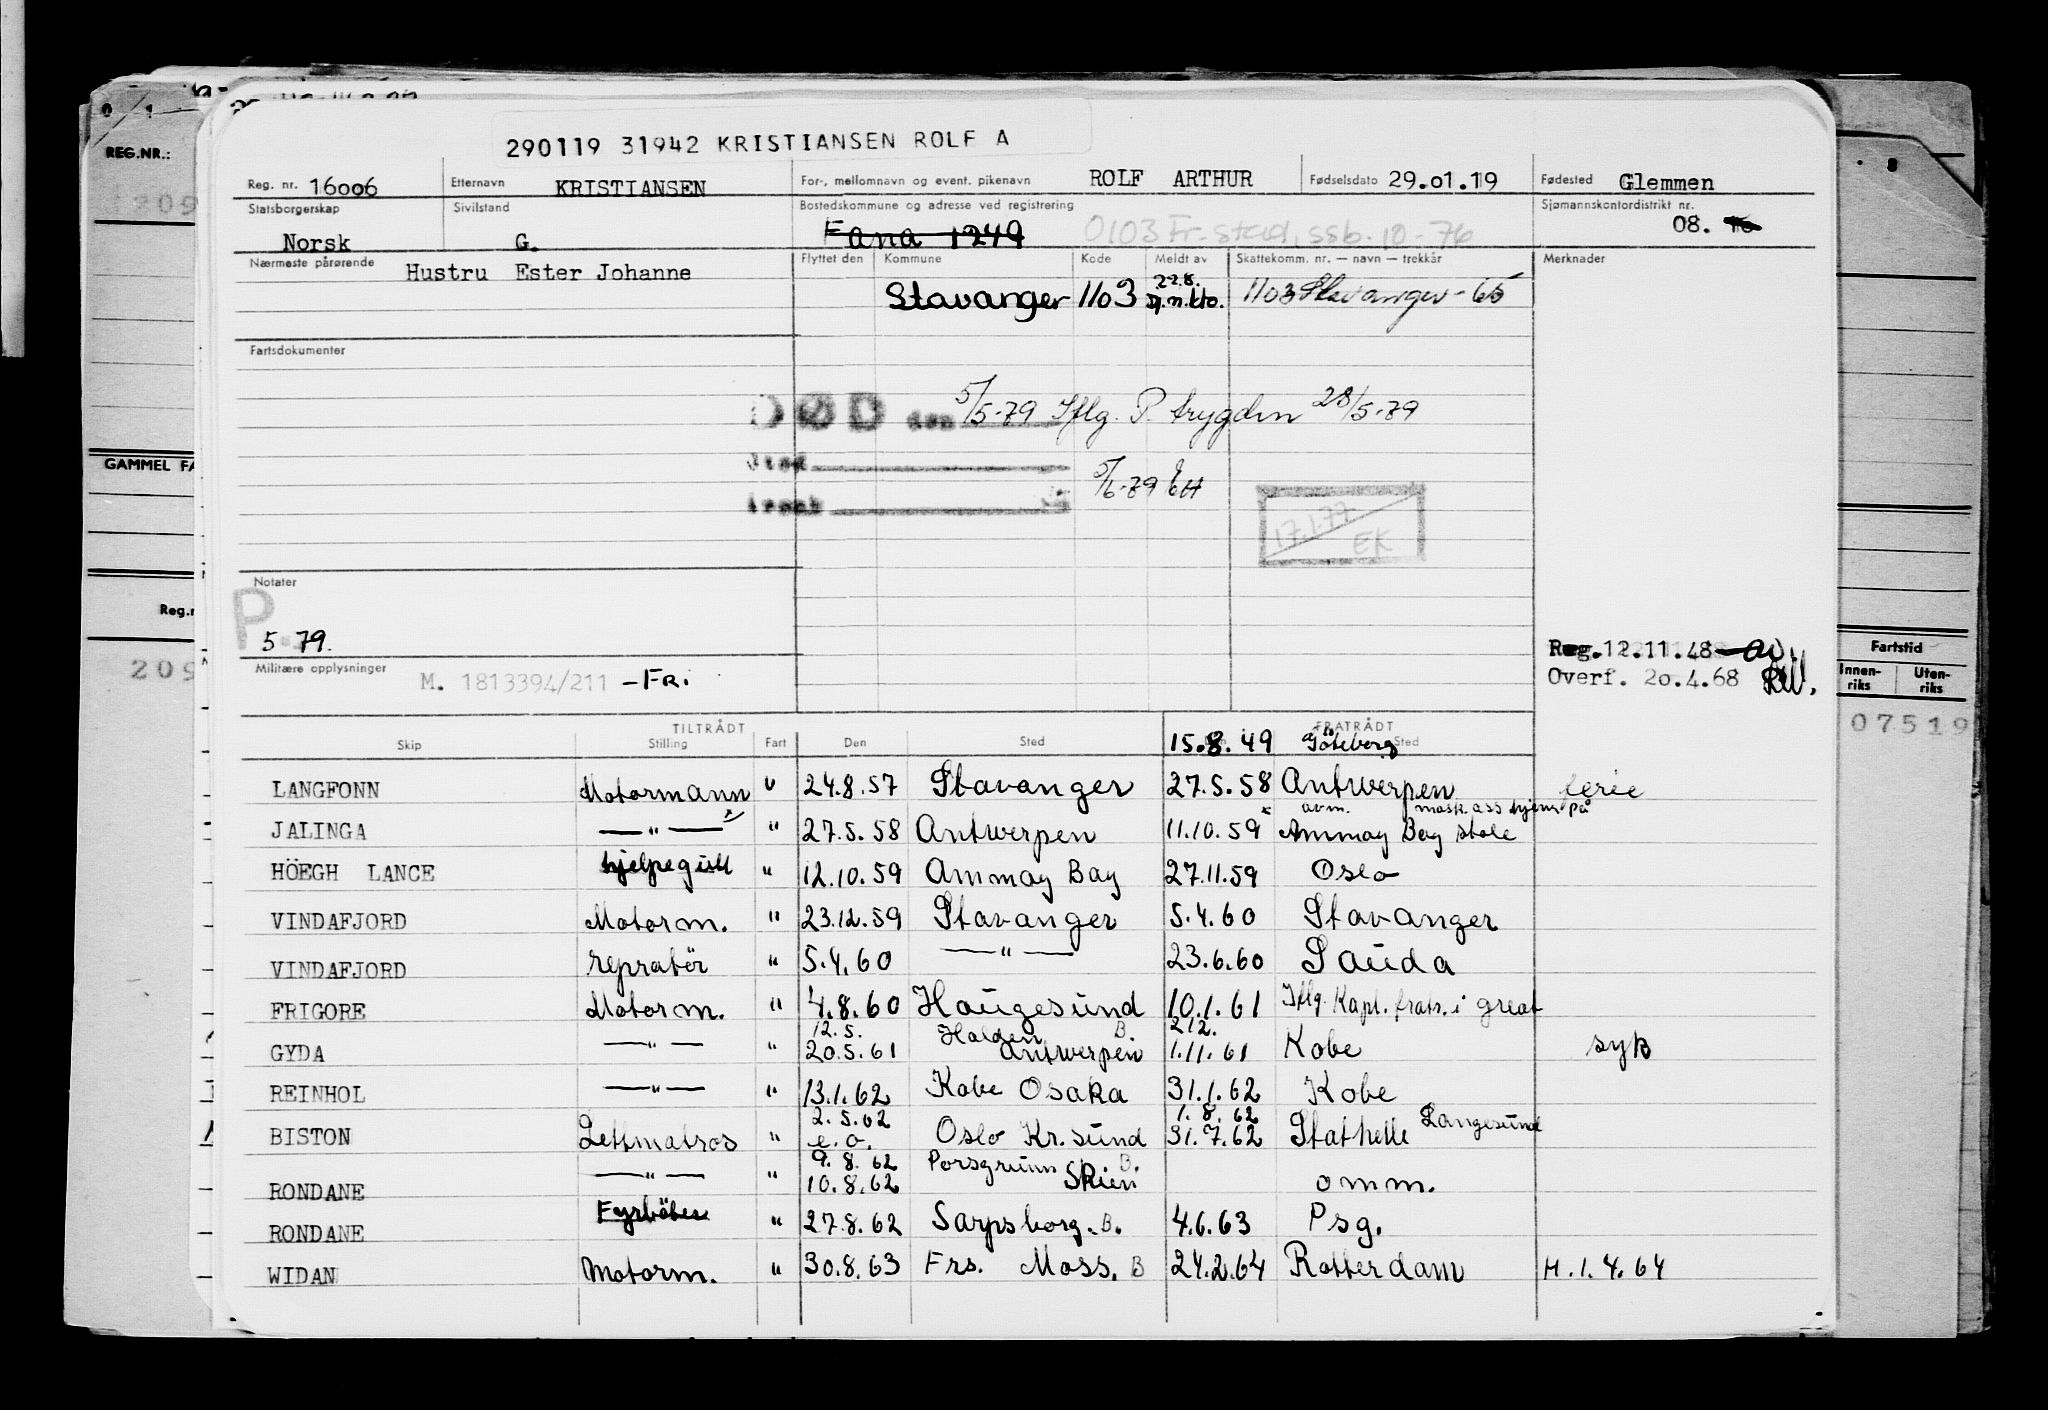 290119 31942 KRISTIANSEN ROLF A
REG.NR.:
Reg. nr. 16006 Etternavn KRISTIANSEN For-, mellomnavn og event. pikenavn ROLF ARTHUR Fødselsdato 29.01.19 Fødested Glemmen
Statsborgerskap Norsk Sivilstand G. Bostedskommune og adresse ved registrering Fana 1249 0103 Fr-stad, ssb. 10-76 Sjømannskontordistrikt nr. 08.
Nærmeste pårørende Hustru Ester Johanne Flyttet den Kommune Kode Meldt av Skattekomm. nr. — navn — trekkår Merknader
Stavanger 1103 1103 Stavanger - 65
Fartsdokumenter
DØD den 5/5-79 Iflg. P. trygden 28/5-79
5/6-79
17.1.77
EK
GAMMEL FA
Notater
P
5-79.
Reg.n
209
Reg. 12.11.48
Militære opplysninger M. 1813394/211 - FRI Overf. 20.4.68 RW.
Fartstid
Innen-riks Uten-riks
07519
TILTRÅDT FRATRÅDT
Skip Stilling Fart Den Sted 15.8.49 Göteborg Sted
LANGFONN Motormann U 24.8.57 Stavanger 27.5.58 Antwerpen ferie
avm. mask.ass hjem på
JALINGA —"— x " 27.5.58 Antwerpen 11.10.59 x Ammay Bay
HÖEGH LANCE hjelpegutt " 12.10.59 Ammay Bay 27.11.59 Oslo
VINDAFJORD Motorm. " 23.12.59 Stavanger 5.4.60 Stavanger
VINDAFJORD repratör " 5.4.60 —"— 23.6.60 Sauda
FRIGORE Motorm. " 4.8.60 Haugesund 10.1.61 Iflg. Kapt. fratr. i great
12.5. Halden B. 2.12.
GYDA —"— " 20.5.61 Antwerpen 1.11.61 Kobe syk
REINHOL —"— " 13.1.62 Kobe Osaka 31.1.62 Kobe
2.5.62 1.8.62 Langesund
BISTON Lettmatros " e.o. Oslo Kr.sund 31.7.62 Stathelle
9.8.62 Porsgrunn B.
RONDANE —"— " 10.8.62 Skien omm.
RONDANE Fyrböter " 27.8.62 Sarpsborg. B. 4.6.63 Psg.
WIDAN Motorm. " 30.8.63 Frs. Moss. B 24.2.64 Rotterdam H.1.4.64